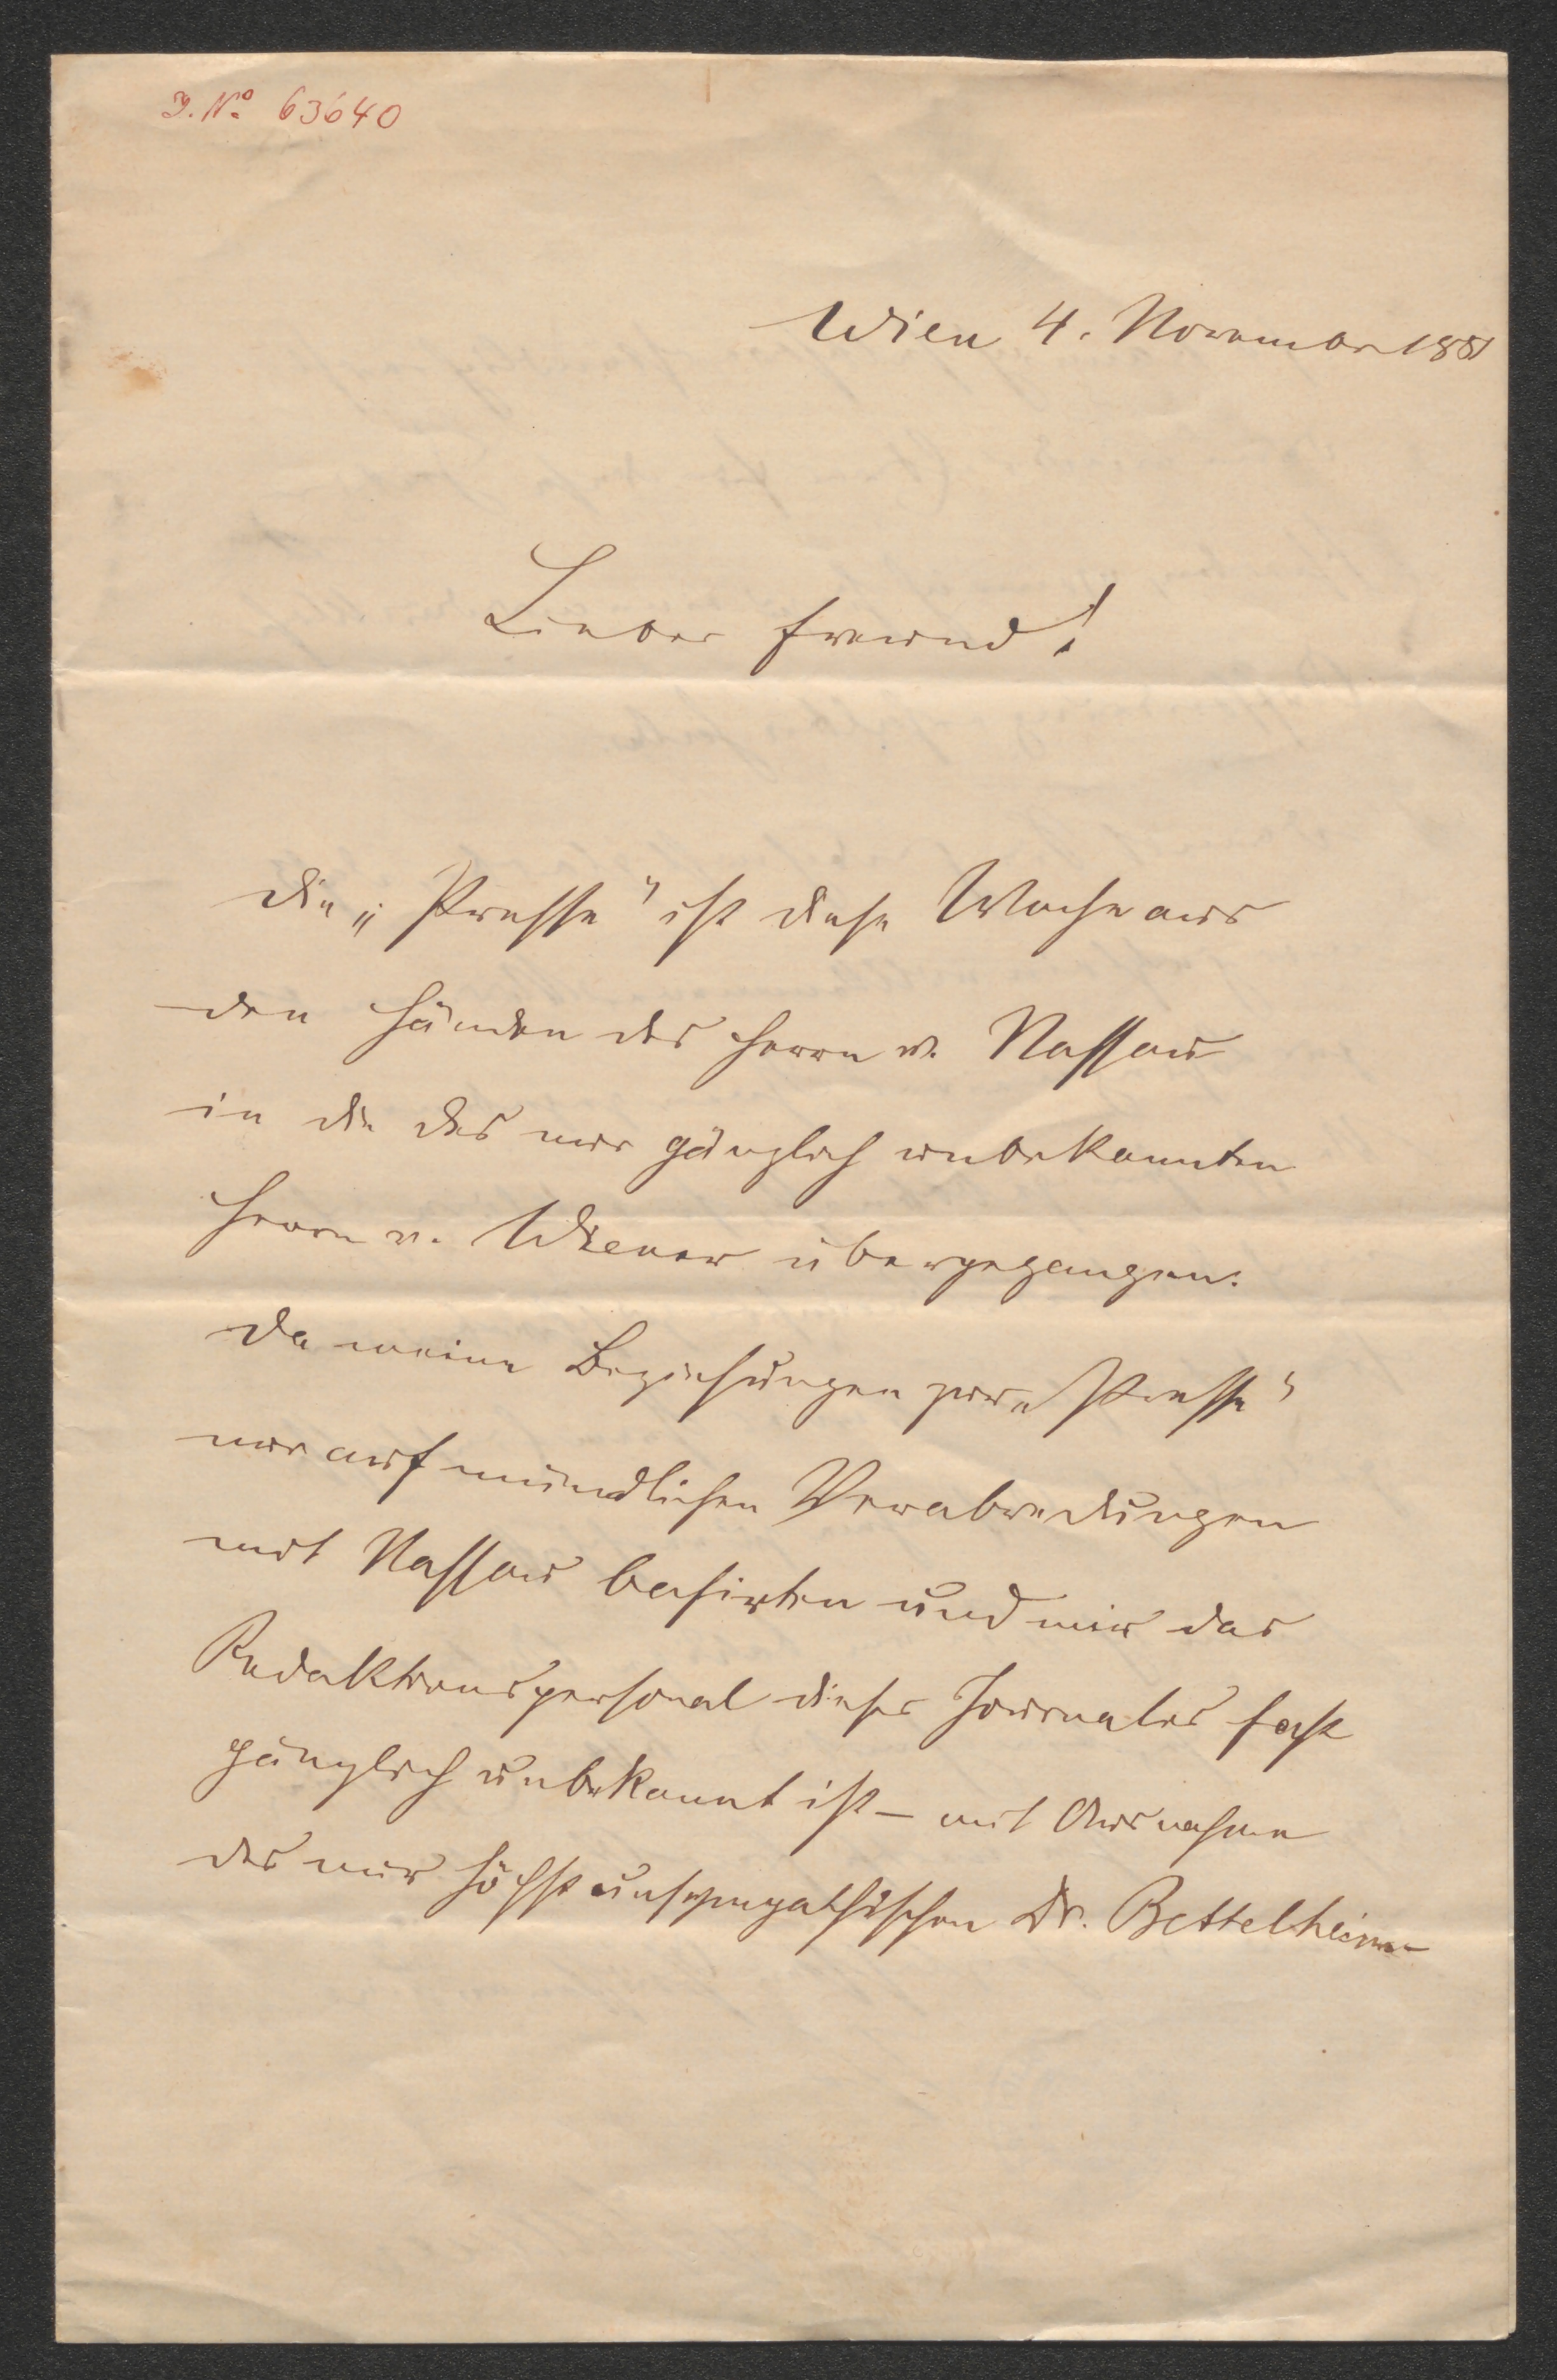 J. Nº 63640
Wien 4. November 1881
Lieber Freund!
Die „Presse" ist diese Woche aus
den Händen des Herrn v. Nassau
in die des mir gänzlich unbekannten
Herrn v. Wiener übergegangen.
Da meine Beziehungen zur „Presse"
nur auf mündlichen Verabredungen
mit Nassau basirten und mir das
Redaktionspersonal dieses Journales fast
gänzlich unbekannt ist – mit Ausnahme
des mir höchst unsympathischen Dr. Bettelheim –